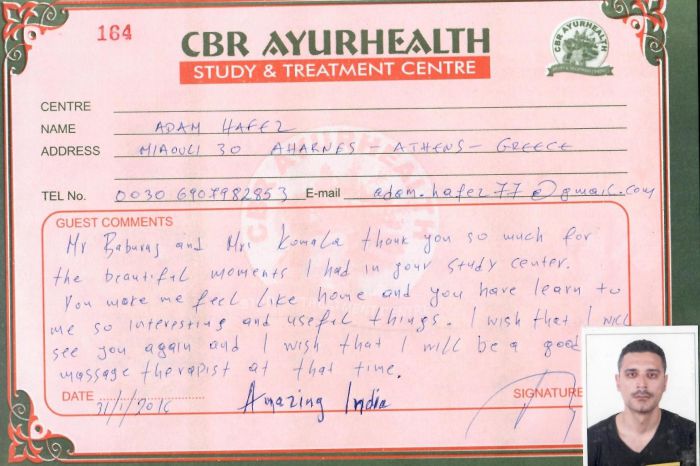 164
CBR AYURHEALTH
STUDY & TREATMENT CENTRE
CBR AYURHEALTH
STUDY & TREATMENT CENTRE
CENTRE
NAME ADAM HAFEZ
ADDRESS MIAOULI 30 AHARNES - ATHENS - GREECE
TEL No. 0030 6907982853 E-mail adam.hafez77@gmail.com
CBR AYURHEALTH
GUEST COMMENTS
Mr Baburaj and Mrs Komala thank you so much for
the beautiful moments I had in your study center.
You make me feel like home and you have learn to
me so interesting and useful things. I wish that I will
see you again and I wish that I will be a good
massage therapist at that time.
DATE 31/1/2016 Amazing India SIGNATURE